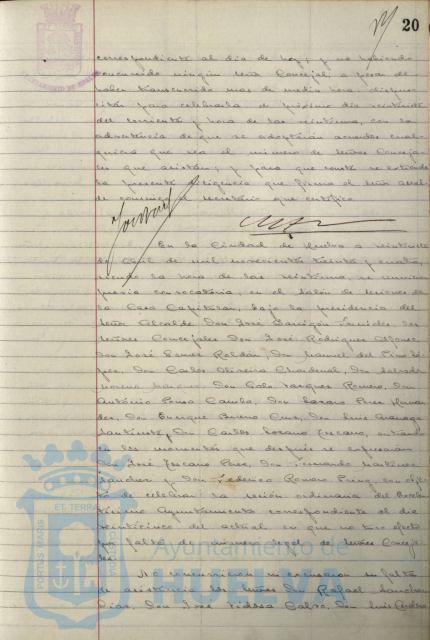 20
correspondiente al día de hoy; y no habiendo
concurrido ningún señor Concejal a pesar de
haber transcurrido mas de media hora, dispuso
citar para celebrarla el próximo día veintisiete
del corriente y hora de las veintiuna, con la
advertencia de que se adoptarán acuerdos cual-
quiera que sea el número de señores Conceja-
les que asistan; y para que conste se extiende
la presente diligencia que firma el señor Alcal-
de conmigo el secretario que certifico
En la Ciudad de Huelva a veintisiete
de Abril de mil novecientos treinta y cuatro,
siendo la hora de las veintiuna, se reunieron
previa convocatoria, en el Salón de sesiones de
la Casa Capitular, bajo la presidencia del
señor Alcalde Don José Barrigón, los
señores Concejales Don José Rodríguez Alfonso,
Don José Ponce Roldán, Don Manuel del Pino Ló-
pez, Don Carlos Oliveira Chardenal, Don Salvador
Moreno Márquez, Don Galo Vázquez Romero, Don
Antonio Pousa Camba, Don Lázaro Pérez Hernán-
dez, Don Enrique Bueno Cruz, Don Luis
Don Carlos Lozano, entrando
en los momentos que después se expresarán
Don José Pérez, Don Fernando Martínez
Sánchez y Don Federico Romero Pérez, con obje-
to de celebrar la sesión ordinaria del Excelen-
tísimo Ayuntamiento correspondiente al día
veinticinco del actual en que no tuvo efecto
por falta de número legal de señores Conceja-
les.
Ni concurrieron ni excusaron su falta
de asistencia los señores Don Rafael
Díaz, Don José Tejera Calvo, Don Luis Cordero
PORTUS MARIS
ET TERRAE
Ayuntamiento de
HUELVA